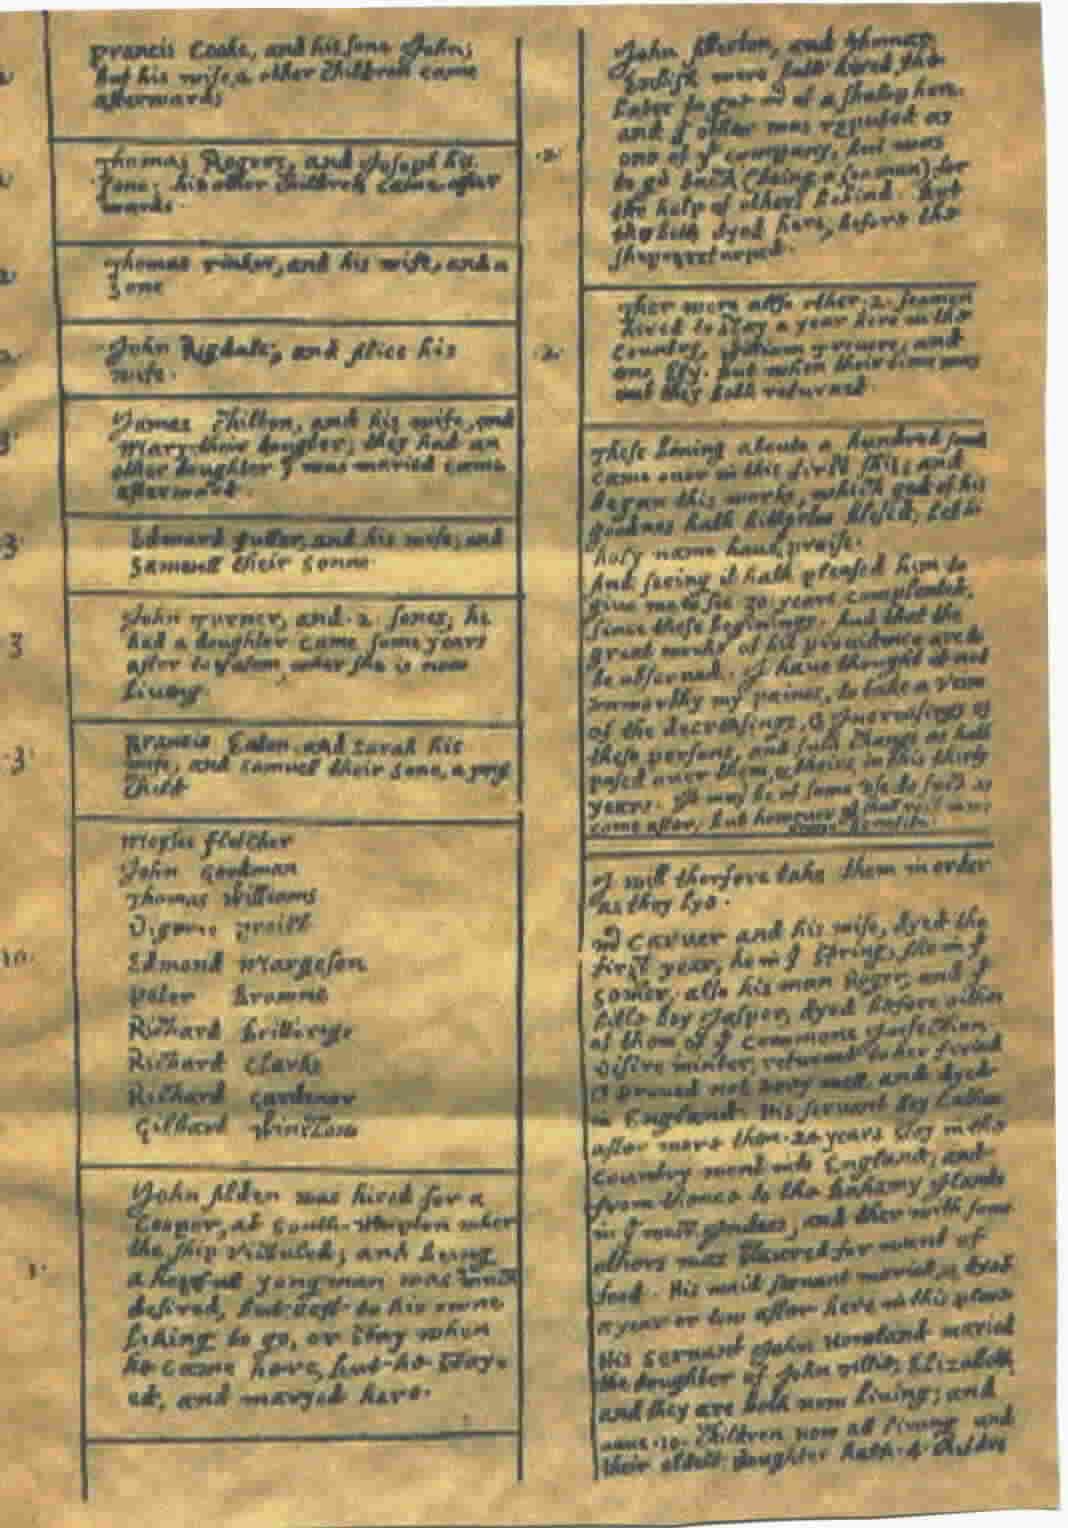 2
francis Cooke, and his sone John;
but his wife, & other children came
afterwards
2
Thomas Rogers, and Joseph his
sone; his other children came after
wards.
2
Thomas Tinker, and his wife, and a
sone
2
John Rigdale, and Alice his
wife.
3
James Chilton, and his wife, and
Mary their doughter; they had an
other doughter yt was maried came
afterward.
3
Edward fuller, and his wife; and
Samuell their sonne.
3
John Turner, and .2. sones; he
had a doughter came some years
after to Salem, wher she is now
living.
3
Francis Eaton, and Sarah his
wife, and Samuel their sone, a yong
child
10
Moyses fletcher
John Goodman
Thomas Williams
Digerie Preist
Edmond Margeson
Peter Browne
Richard Britterige
Richard Clarke
Richard Gardenar
Gilbart Winslow
1
John Alden was hired for a
cooper, at South-Hampton wher
the ship victuled; and being
a hopfull yong man was much
desired, but left to his owne
liking to go, or stay when
he came here, but he stay-
ed, and maryed here.
.2.
John Allerton, and Thomas
English were both hired, the
later to goe mr of a shalop here.
and ye other was reputed as
one of ye company, but was
to go back (being a seaman) for
the help of others behind. But
they both dyed here, before the
shipe returned.
.2.
Ther were allso other .2. seamen
hired to stay a year here in the
country, William Trevore, and
one Ely. But when their time was
out they both returned.
These being aboute a hundred sowls
came over in this first ship; and
began this worke, which god of his
goodnes hath hithertoo blesed; let his
holy name have praise.
And seeing it hath pleased him to
give me to see 30. years compleated,
since these beginings. And that the
great works of his providence are to
be observed. I have thought it not
unworthy my paines, to take a veiw
of the decreasings, & Increasings of
these persons, and such change as hath
pased over them, & theirs, in this thirty
years. It may be of some use to such as
come after, but however I shall rest in my
owne benefite.
I will therfore take them in order
as they lye.
mr Carver and his wife, dyed the
first year, he in ye spring, she in ye
somer; also his man Roger, and ye
litle boy Jasper, dyed before either
of them of ye commone Infection.
Desire minter, returned to her freind
& proved not very well, and dyed
in England. His servant boy Latham
after more then .20. years stay in the
country went into England; and
from thence to the Bahamy Ilands
in ye west Indees; and ther with some
others was starved for want of
food. His maid servant maried, & dyed
a year or tow after here in this place
His servant John Howland maried
the doughter of John Tillie, Elizabeth,
and they are both now living; and
have .10. children now all living and
their eldest doughter hath .4. children